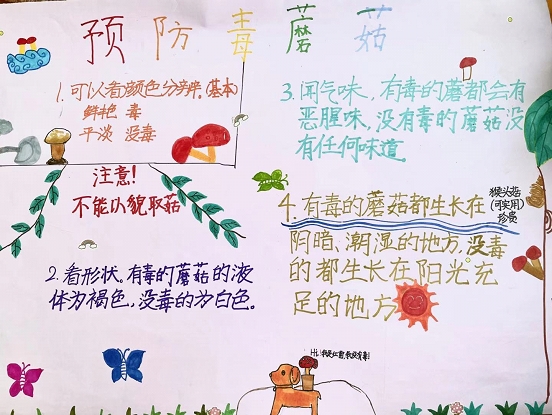 预防毒蘑菇
1.可以看颜色分辨。(基本)
鲜艳 毒
平淡 没毒
注意!
不能以貌取菇
2.看形状。有毒的蘑菇的液
体为褐色,没毒的为白色。
3.闻气味,有毒的蘑都会有
恶腥味,没有毒的蘑菇没
有任何味道
4.有毒的蘑菇都生长在
阴暗、潮湿的地方.没毒
的都生长在阳光充
足的地方
猴头菇
(可实用)
珍贵
Hi!